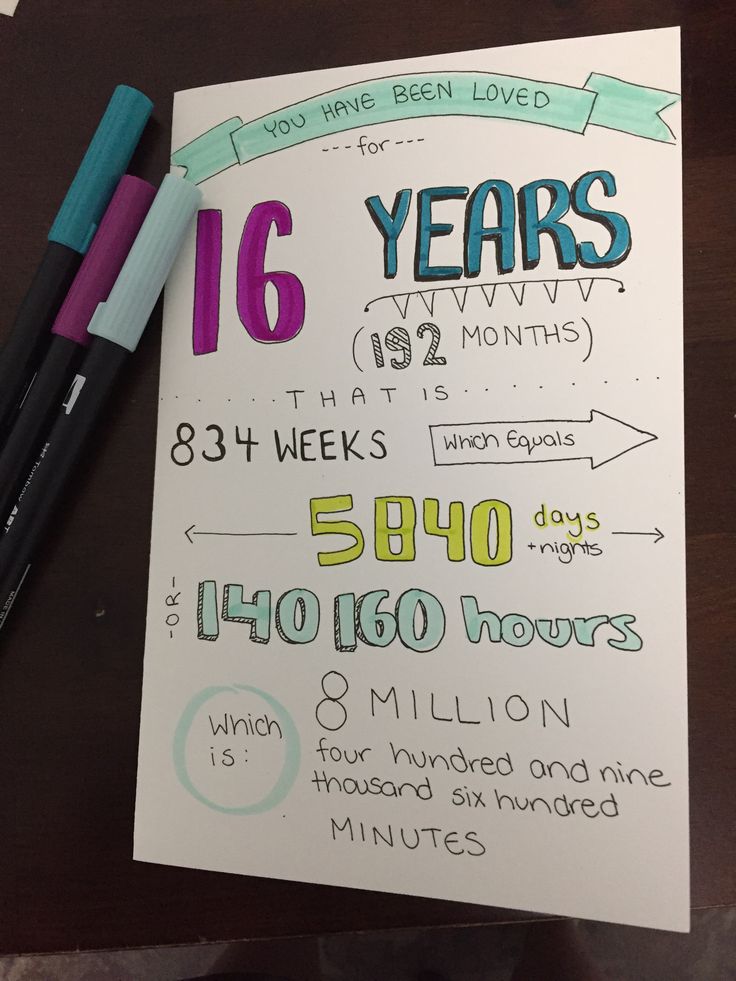 YOU HAVE BEEN LOVED
---for---
16 YEARS
(192 MONTHS)
THAT IS
834 WEEKS Which Equals
5840 days
+nights
-OR-
140160 hours
Which
is:
8 MILLION
four hundred and nine
thousand six hundred
MINUTES
Tombow ABT
MADE IN